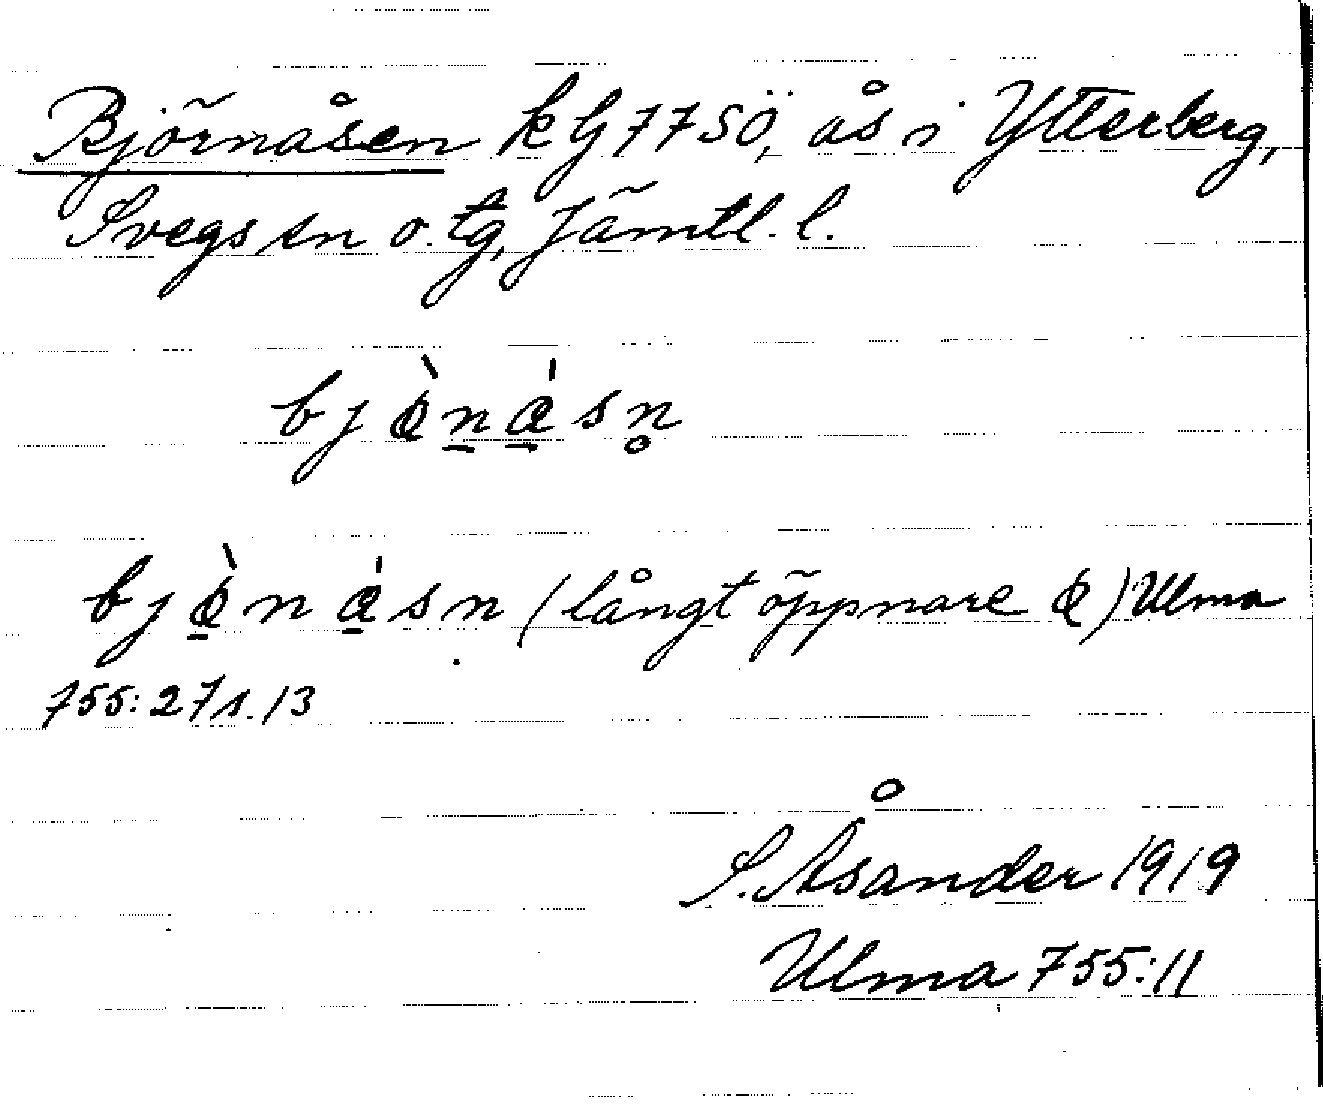 Björnåsen kG 77 SÖ, ås i Ytterberg,
Svegs sn o. tg, Jämtl. l.
bjœ̀n̠œ̠́sn̥
bjœ̠̀nœ̠́sn (långt öppnare œ) Ulma
755: 27 s. 13
S. Åsander 1919
Ulma 755: 11